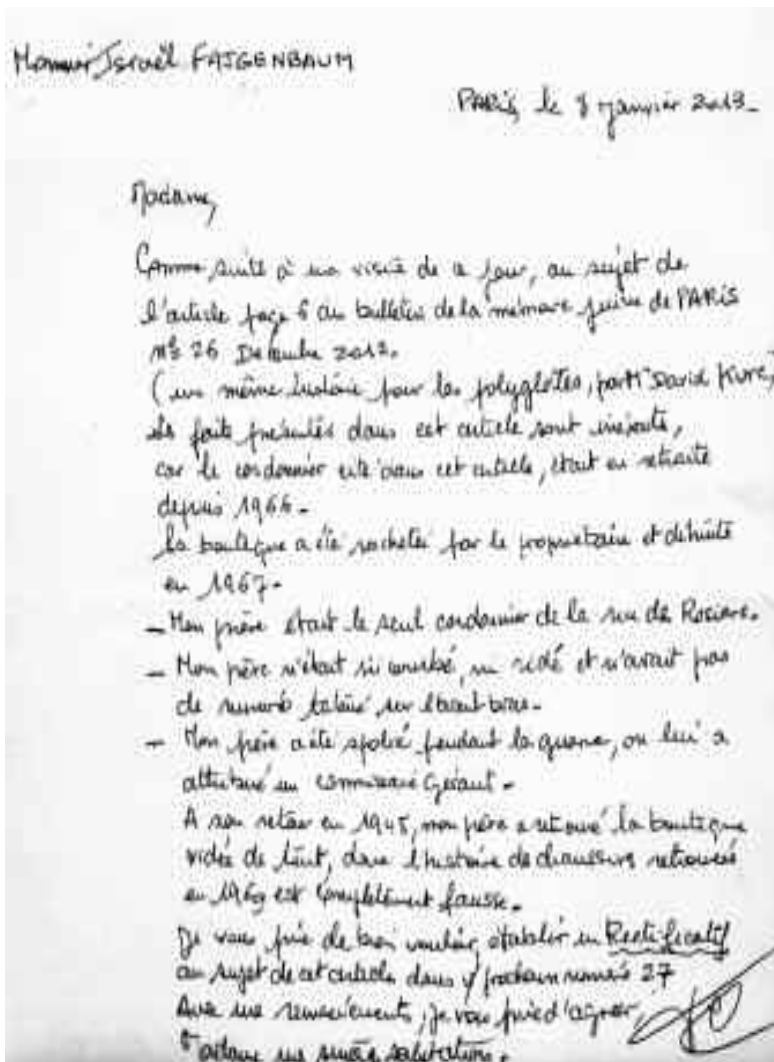 Monsieur Israël FAJGENBAUM
PARIS, le 8 janvier 2013-
Madame,
Comme suite à ma visite de ce jour, au sujet de
l'article page 6 du bulletin de la mémoire juive de PARIS
n° 26 Décembre 2012.
(une même histoire pour les polyglottes, par Mr David
les faits présentés dans cet article sont inexacts,
car le cordonnier cité dans cet article, était en retraite
depuis 1966-
la boutique a été rachetée par le propriétaire et détruite
en 1967-
- Mon père était le seul cordonnier de la rue des Rosiers.
- Mon père n'était ni courbé, ni ridé et n'avait pas
de numéro tatoué sur l'avant bras-
- Mon père a été spolié pendant la guerre, on lui a
attribué un commissaire Gérant-
A son retour en 1945, mon père a retrouvé la boutique
vidée de tout, donc l'histoire de chaussures retrouvées
en 1969 est complètement fausse-
Je vous prie de bien vouloir, établir un Rectificatif
au sujet de cet article dans prochain numéro 27
Avec mes remerciements, je vous prie d'agréer,
Madame mes salutations.